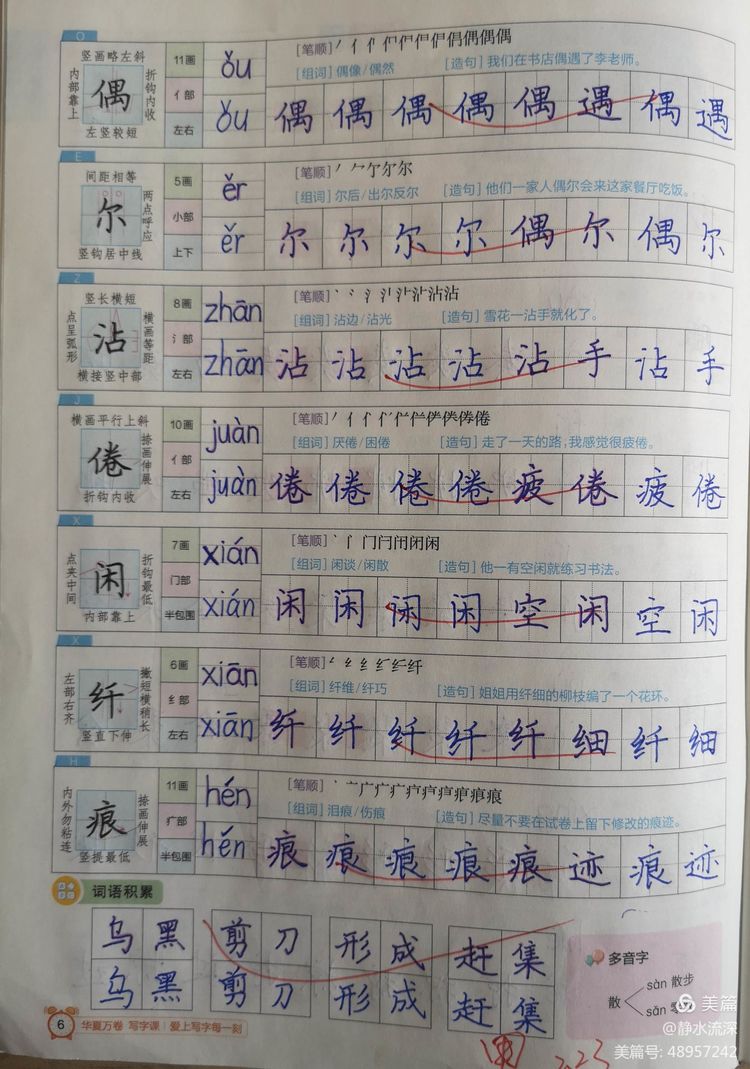 O
竖画略左斜
内部靠上
偶
折钩内收
左竖较短
11画
亻部
左右
ǒu
ǒu
[笔顺]
[组词] 偶像/偶然 [造句] 我们在书店偶遇了李老师。
偶 偶 偶 偶 偶 遇 偶 遇
E
间距相等
尔
两点呼应
竖钩居中线
5画
小部
上下
ěr
ěr
[笔顺]
[组词] 尔后/出尔反尔 [造句] 他们一家人偶尔会来这家餐厅吃饭。
尔 尔 尔 尔 偶 尔 偶 尔
Z
竖长横短
点呈弧形
沾
横画等距
横接竖中部
8画
氵部
左右
zhān
zhān
[笔顺]
[组词] 沾边/沾光 [造句] 雪花一沾手就化了。
沾 沾 沾 沾 沾 手 沾 手
J
横画平行上斜
倦
捺画伸展
折钩内收
10画
亻部
左右
juàn
juàn
[笔顺]
[组词] 厌倦/困倦 [造句] 走了一天的路,我感觉很疲倦。
倦 倦 倦 倦 疲 倦 疲 倦
X
点夹中间
闲
折钩最低
内部靠上
7画
门部
半包围
xián
xián
[笔顺]
[组词] 闲谈/闲散 [造句] 他一有空闲就练习书法。
闲 闲 闲 闲 空 闲 空 闲
X
左部右齐
纤
撇短横稍长
竖直下伸
6画
纟部
左右
xiān
xiān
[笔顺]
[组词] 纤维/纤巧 [造句] 姐姐用纤细的柳枝编了一个花环。
纤 纤 纤 纤 纤 细 纤 细
H
内外勿粘连
痕
捺画伸展
竖提最低
11画
疒部
半包围
hén
hén
[笔顺]
[组词] 泪痕/伤痕 [造句] 尽量不要在试卷上留下修改的痕迹。
痕 痕 痕 痕 痕 迹 痕 迹
词语积累
乌黑 剪刀 形成 赶集
乌黑 剪刀 形成 赶集
多音字
散
sàn 散步
sǎn
6 华夏万卷 写字课 爱上写字每一刻
美篇
@静水流深
美篇号: 48957242